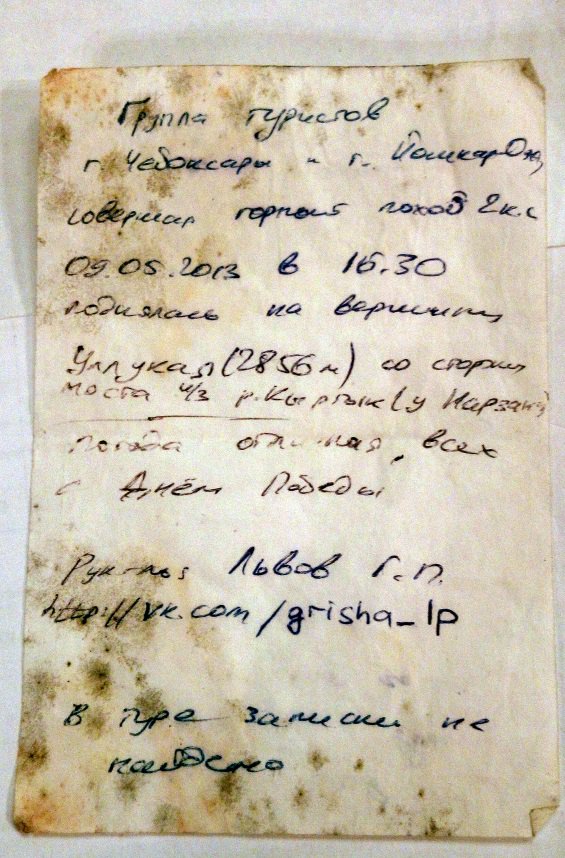 Группа туристов
г. Чебоксары и г. Йошкар Ола,
совершая горный поход 2к.с
09.05.2013 в 16.30
поднялась на вершину
Уллукая (2856м) со стороны
моста ч/з р.Кыртык (у Нарзана)
погода отличная, всех
с Днём Победы
Рук-тель Львов Г.П.
http://vk.com/grisha_lp
В туре записки не
найдено